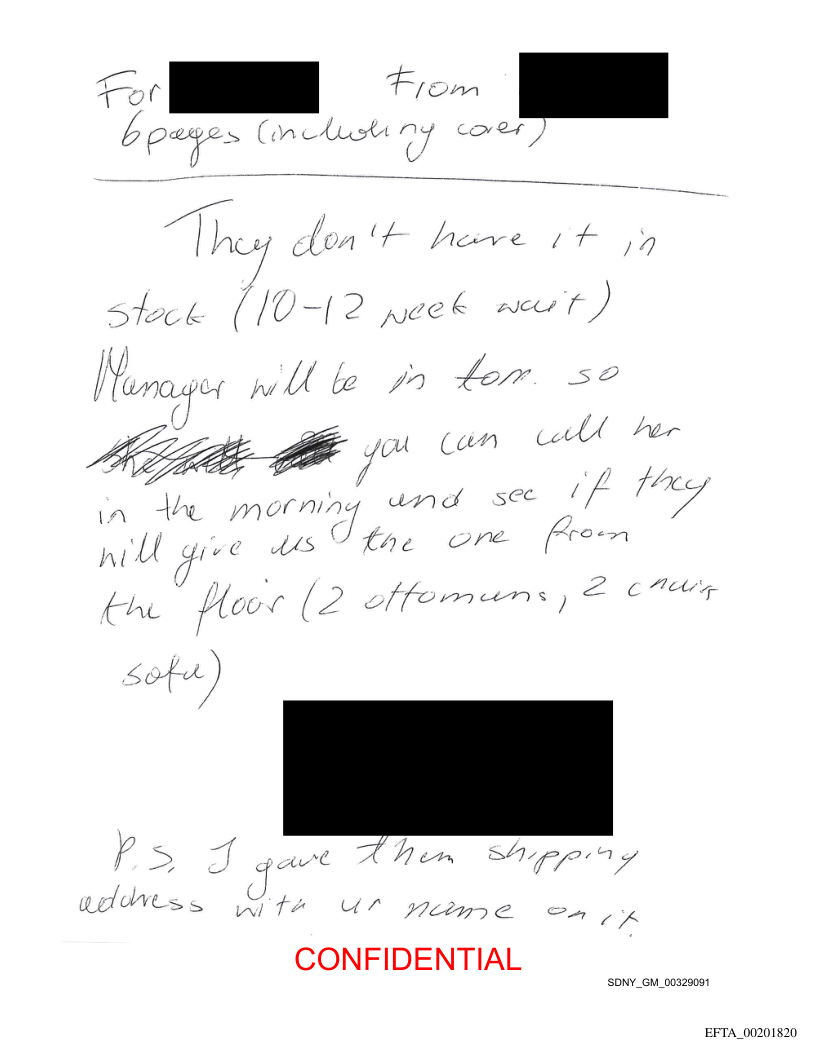 For From
6 pages (including cover)
They don't have it in
stock (10-12 week wait)
Manager will be in tom. so
you can call her
in the morning and see if they
will give us the one from
the floor (2 ottomans, 2 chairs
sofa)
P.S. I gave them shipping
address with ur name on it.
CONFIDENTIAL
SDNY_GM_00329091
EFTA_00201820